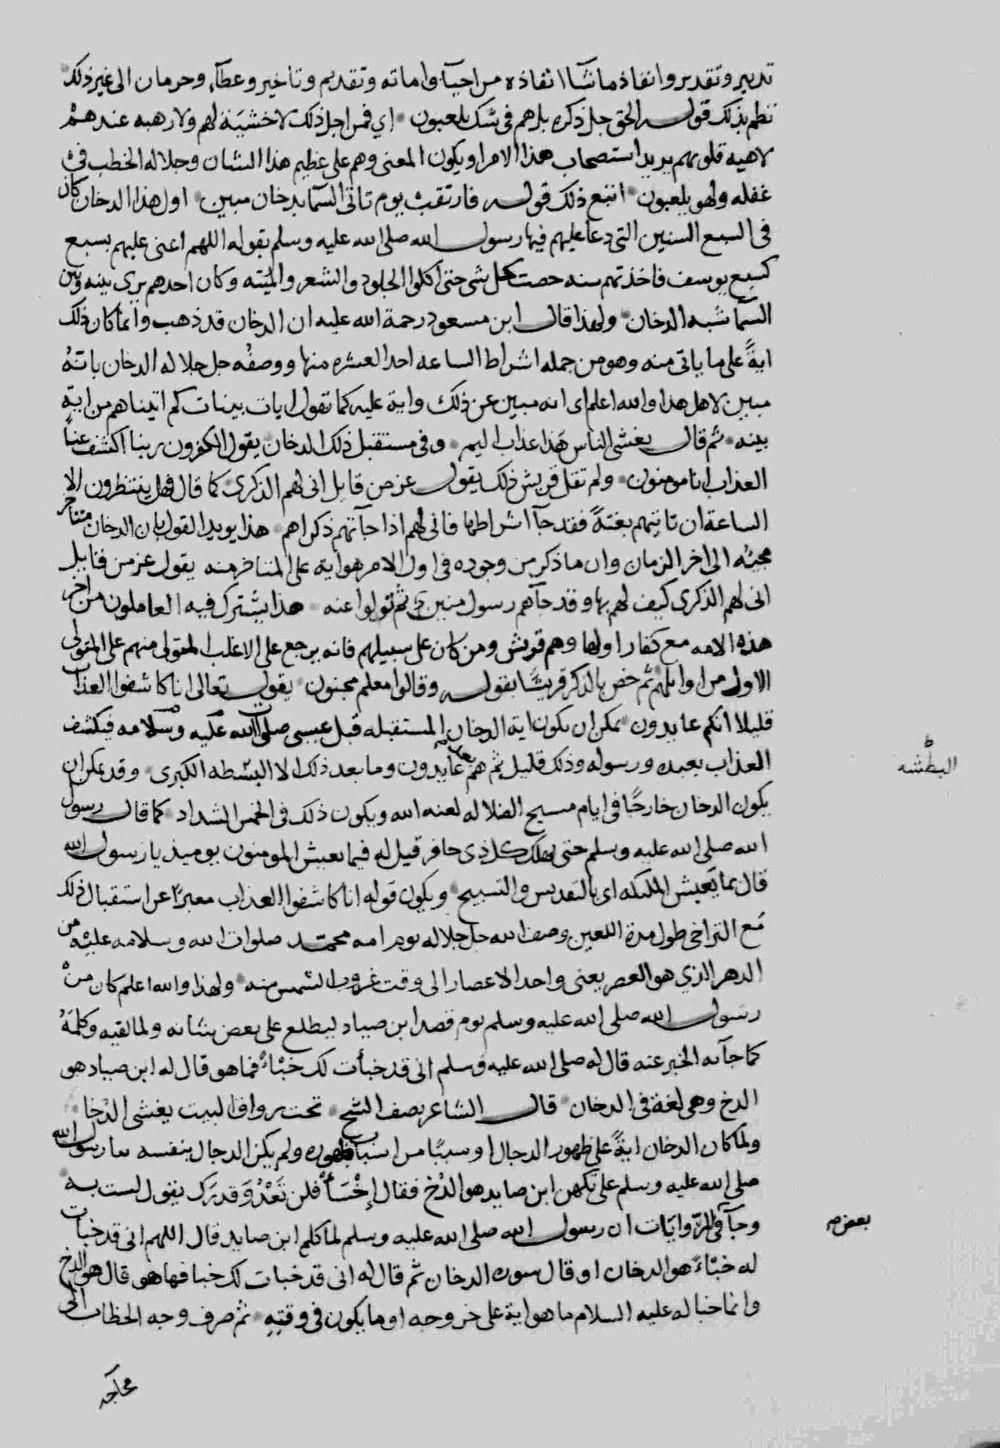 تدبير وتقدير وانفاذ ما شآ انفاذه من احيآ واماته وتقديم وتاخير وعطآ، وحرمان الى غير ذلك
نظم بذلك قوله الحق جل ذكره بل هم فى شك يلعبون اي فمن اجل ذلك لا خشية لهم ولا رهبه عندهم
لاهيه قلوبهم يريد استصحاب هذا الامر او يكون المعنى وهم على عظيم هذا الشان وجلاله الخطب فى
غفله ولهو يلعبون اتبع ذلك قوله فارتقب يوم تاتى السمآ بدخان مبين اول هذا الدخان كان
فى السبع السنين التى دعا عليهم فيها رسول الله صلى الله عليه وسلم بقوله اللهم اعنى عليهم بسبع
كسبع يوسف فاخذتهم سنه حصت كل شى حتى اكلوا الجلود والشعر والميته وكان احدهم يرى بينه وبين
السمآ شبه الدخان ولهذا قال ابن مسعود رحمة الله عليه ان الدخان قد ذهب وانما كان ذلك
ايةً على ما ياتى منه وهو من جمله اشراط الساعه احد العشره منها ووصفُه جل جلاله الدخان بانهُ
مبين لاهل هذا والله اعلم اى انه مبين عن ذلك واية عليه كما تقول ايات بينات كم اتيناهم من اية
بينه ثم قال يغشى الناس هذا عذاب اليم وفى مستقبل ذلك الدخان يقول الكفرون ربنا اكشف عنا
العذاب انا مومنون ولم تقل قريش ذلك يقول عز من قايل انى لهم الذكرى كما قال فهل ينتظرون الا
الساعة ان تاتيهم بغتةً فقد جآ اشراطها فانى لهم اذا جآتهم ذكراهم هذا يويد القول بان الدخان متاخر
مجيئه الى اخر الزمان وان ما ذكر من وجوده فى اول الامر هو اية على المتاخر منه يقول عز من قايل
انى لهم الذكرى كيف لهم بها وقد جآهم رسول مبين ثم تولوا عنه هذا يشترك فيه العاملون من اخر
هذه الامه مع كفار اولها وهم قريش ومن كان على سبيلهم فانه يرجع على الاغلب المتولى منهم على المتولى
الاول من اوايلهم ثم خص بالذكر قريشًا بقوله وقالوا معلم مجنون يقول تعالى انا كاشفوا العذاب
قليلا انكم عايدون يمكن ان يكون اية الدخان المستقبله قبل عيسى صلى الله عليه وسلامه فيكشف
العذاب بعبده ورسوله وذلك قليل ثم هم عايدون وما بعد ذلك الا البشطه الكبرى وقد يمكن ان
البطشه
يكون الدخان خارجًا فى ايام مسيح الضلاله لعنه الله ويكون ذلك فى الخمس الشداد كما قال رسول
الله صلى الله عليه وسلم حتى يهلك كل ذى حافر قيل له فبما يعيش المومنون يوميذ يا رسول الله
قال بما تعيش الملىكه اى بالتقديس والتسبيح ويكون قوله انا كاشفوا العذاب معبرًا عن استقبال ذلك
مع التراخى طول مدة اللعين وصف الله جل جلاله يوم امه محمد صلوات الله وسلامه عليه من
الدهر الذي هو العصر يعنى واحد الاعصار الى وقت غروب الشمس منه ولهذا والله اعلم كان من
رسول الله صلى الله عليه وسلم يوم قصد ابن صياد ليطلع على بعض شانه ولما لقيه وكلمهُ
كما جآ به الخبر عنه قال له صلى الله عليه وسلم انى قد خبأت لك خبْأً فما هو قال له ابن صياد هو
الدخ وهى لغة فى الدخان قال الشاعر يصف الشيح تحت رواق البيت يغشى الدخا
ولما كان الدخان ايةً على ظهور الدجال او سببًا من اسباب ظهوره ولم يكن الدجال بنفسه رسول الله
صلى الله عليه وسلم على تكهن ابن صايد هو الدُخ فقال إخْسَأْ فلن تَعْدُوَ قدرك يقول لست به
وجآ فى الروايات ان رسول الله صلى الله عليه وسلم لما كلم ابن صايد قال اللهم انى قد خبات
بعض
له خبْأً هو الدخان او قال سورة الدخان ثم قال له انى قد خبات لك خبا فما هو قال هو الدخ
وانما خبا له عليه السلام ما هو اية على خروجه او ما يكون فى وقته ثم صرف وجه الخطاب الى
محاجه